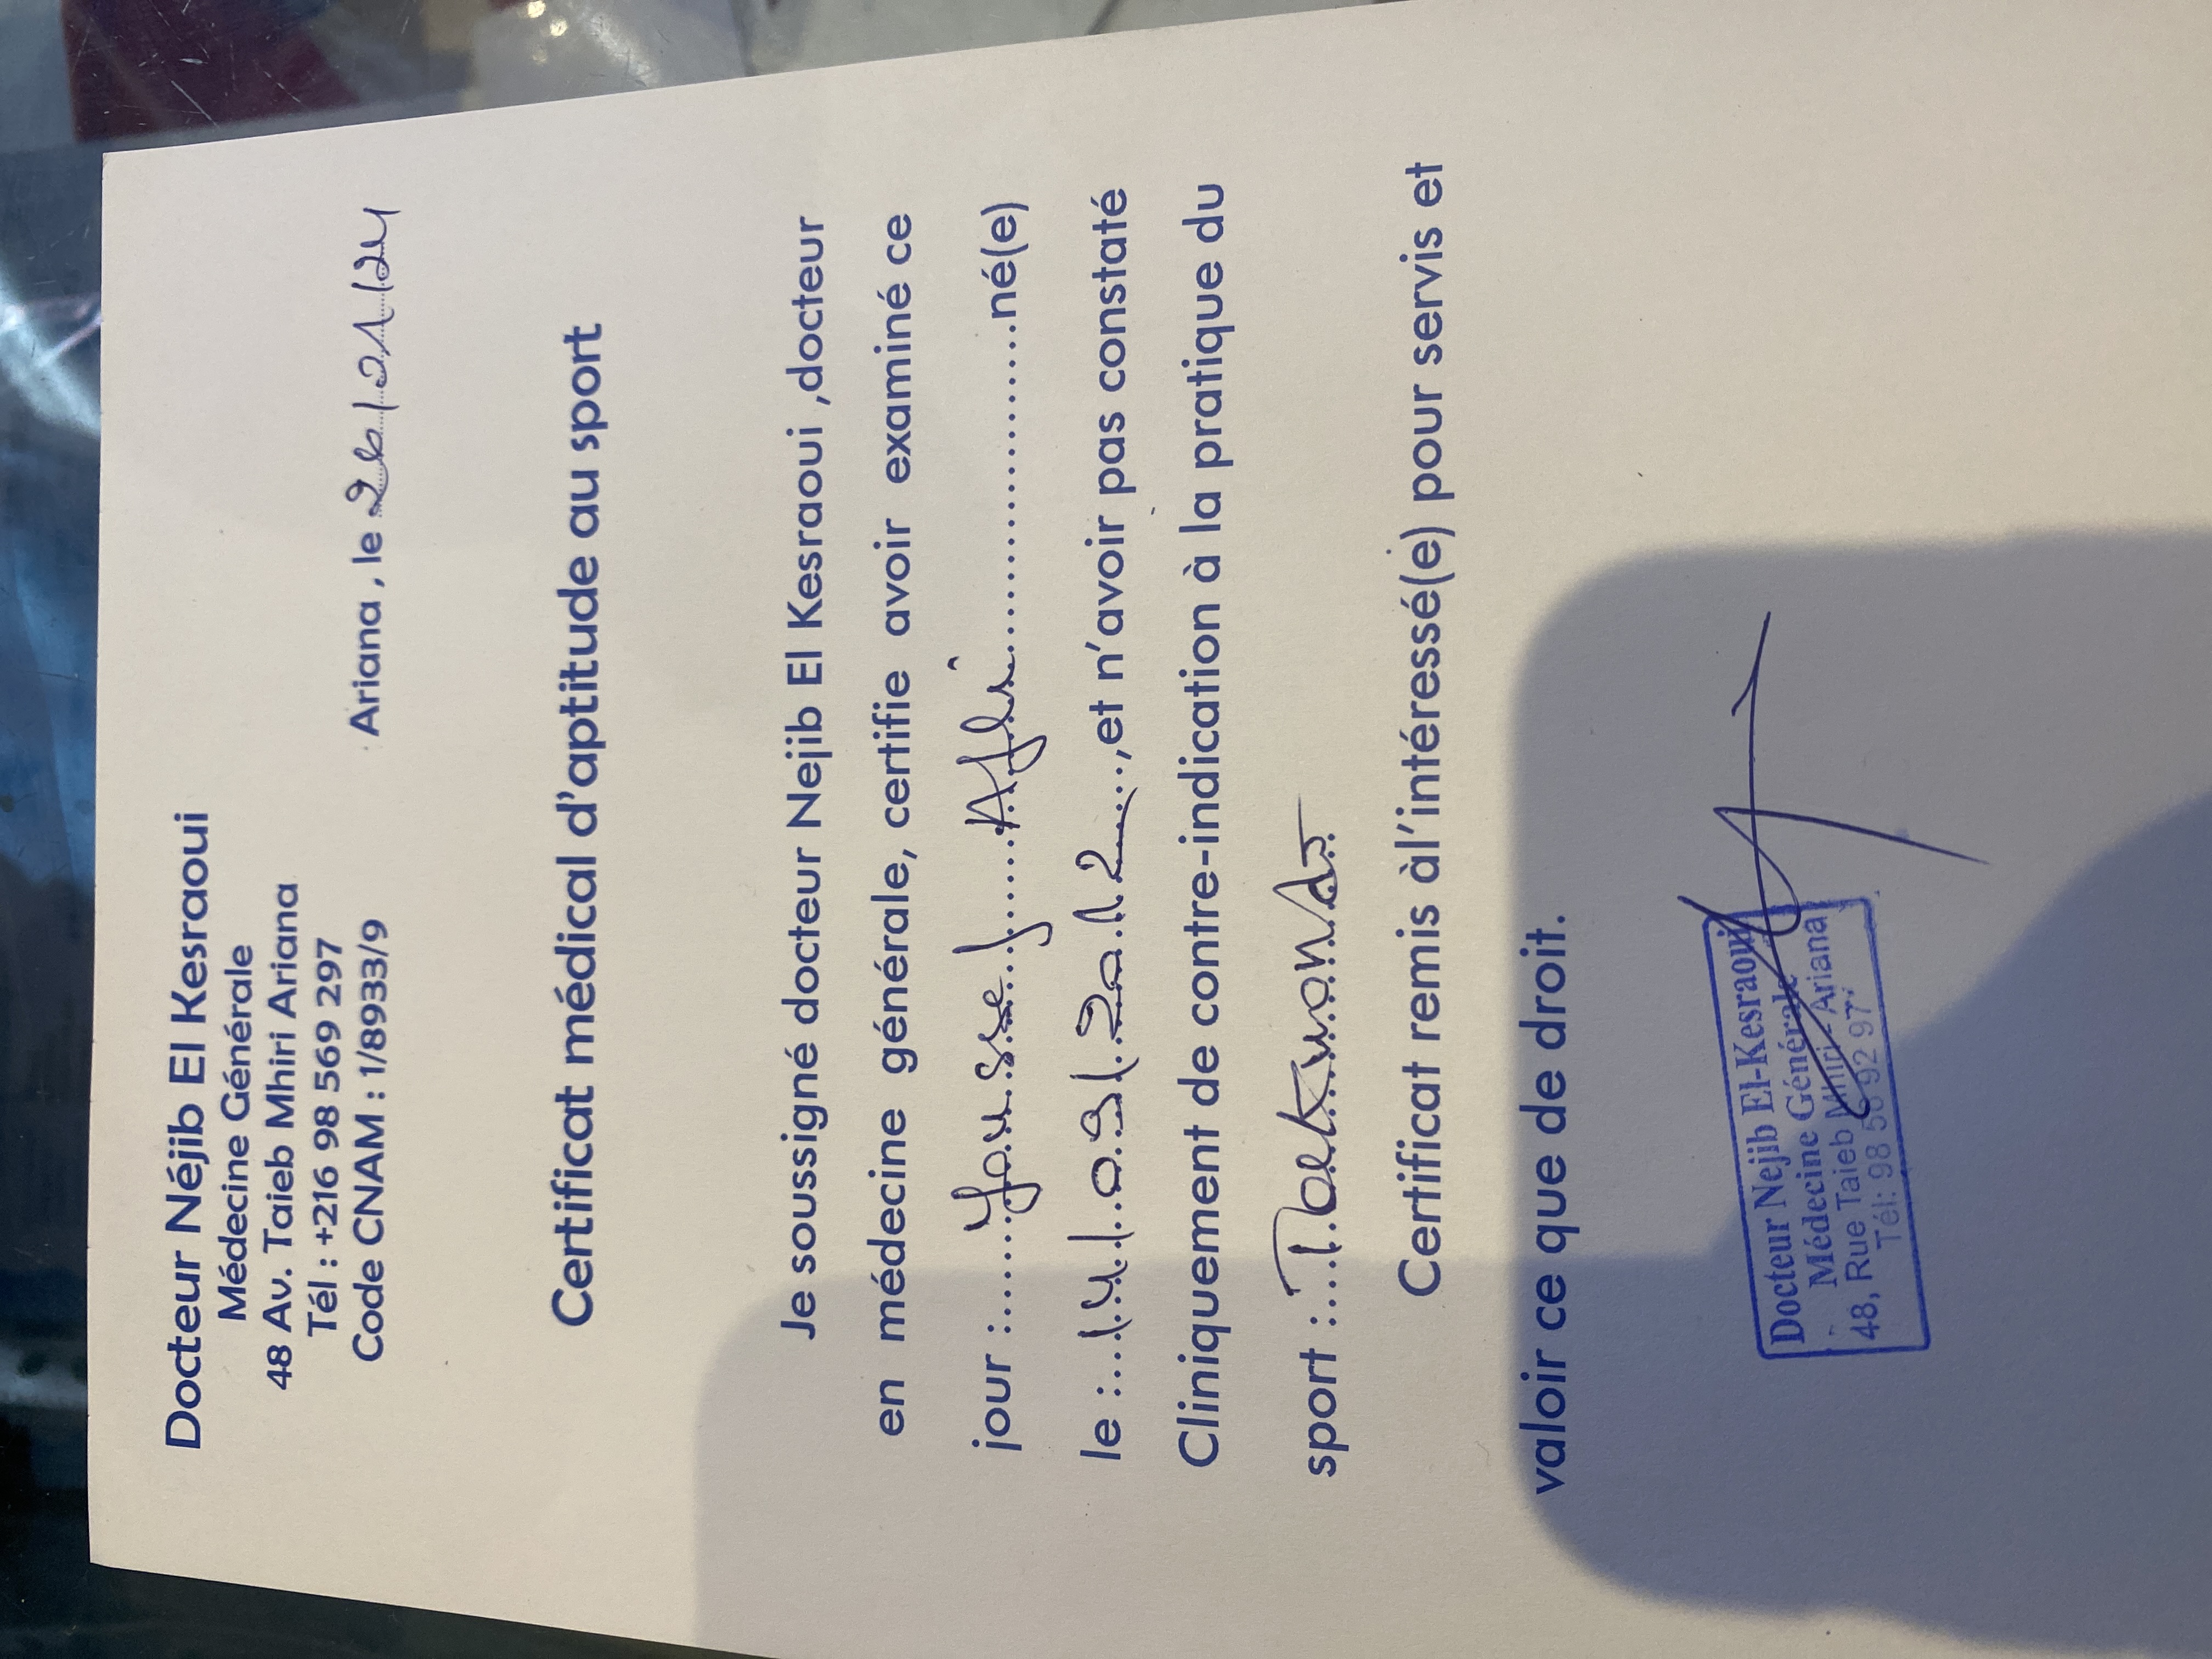 Docteur Néjib El Kesraoui
Médecine Générale
48 Av. Taieb Mhiri Ariana
Tél : +216 98 569 297
Code CNAM : 1/8933/9
Ariana , le 26/01/24
Certificat médical d'aptitude au sport
Je soussigné docteur Nejib El Kesraoui ,docteur
en médecine générale, certifie avoir examiné ce
jour :........Youssef......Afli..................né(e)
le :...14/09/2012.....,et n'avoir pas constaté
Cliniquement de contre-indication à la pratique du
sport :....Taekwondo
Certificat remis àl'intéressé(e) pour servis et
valoir ce que de droit.
Docteur Nejib El-Kesraoui
Médecine Générale
48, Rue Taieb Mhiri - Ariana
Tél: 98 56 92 97